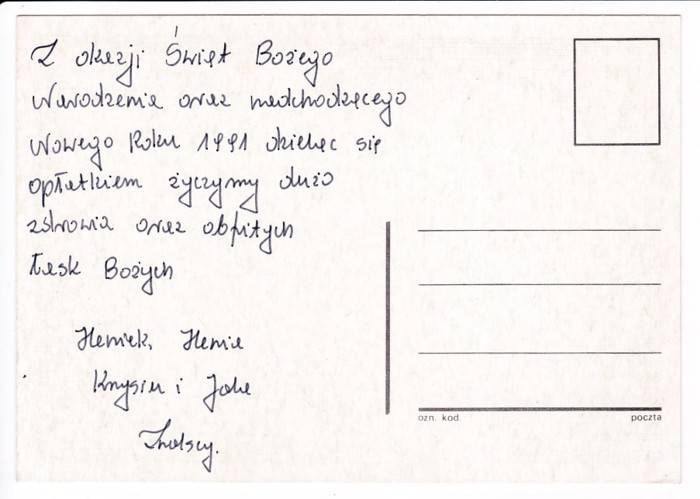 Z okazji Świąt Bożego
Narodzenia oraz nadchodzącego
Nowego Roku 1991 dzieląc się
opłatkiem życzymy dużo
zdrowia oraz obfitych
Łask Bożych
Heniek, Henia
Krysia i Jola
ozn. kod.
poczta